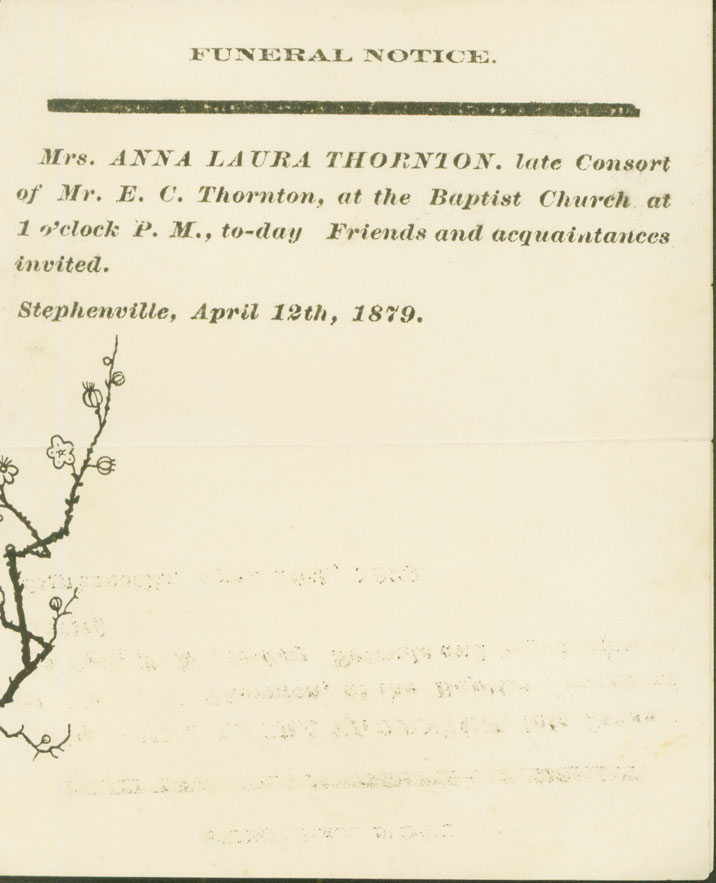 FUNERAL NOTICE.
Mrs. ANNA LAURA THORNTON. late Consort
of Mr. E. C. Thornton, at the Baptist Church at
1 o'clock P. M., to-day Friends and acquaintances
invited.
Stephenville, April 12th, 1879.